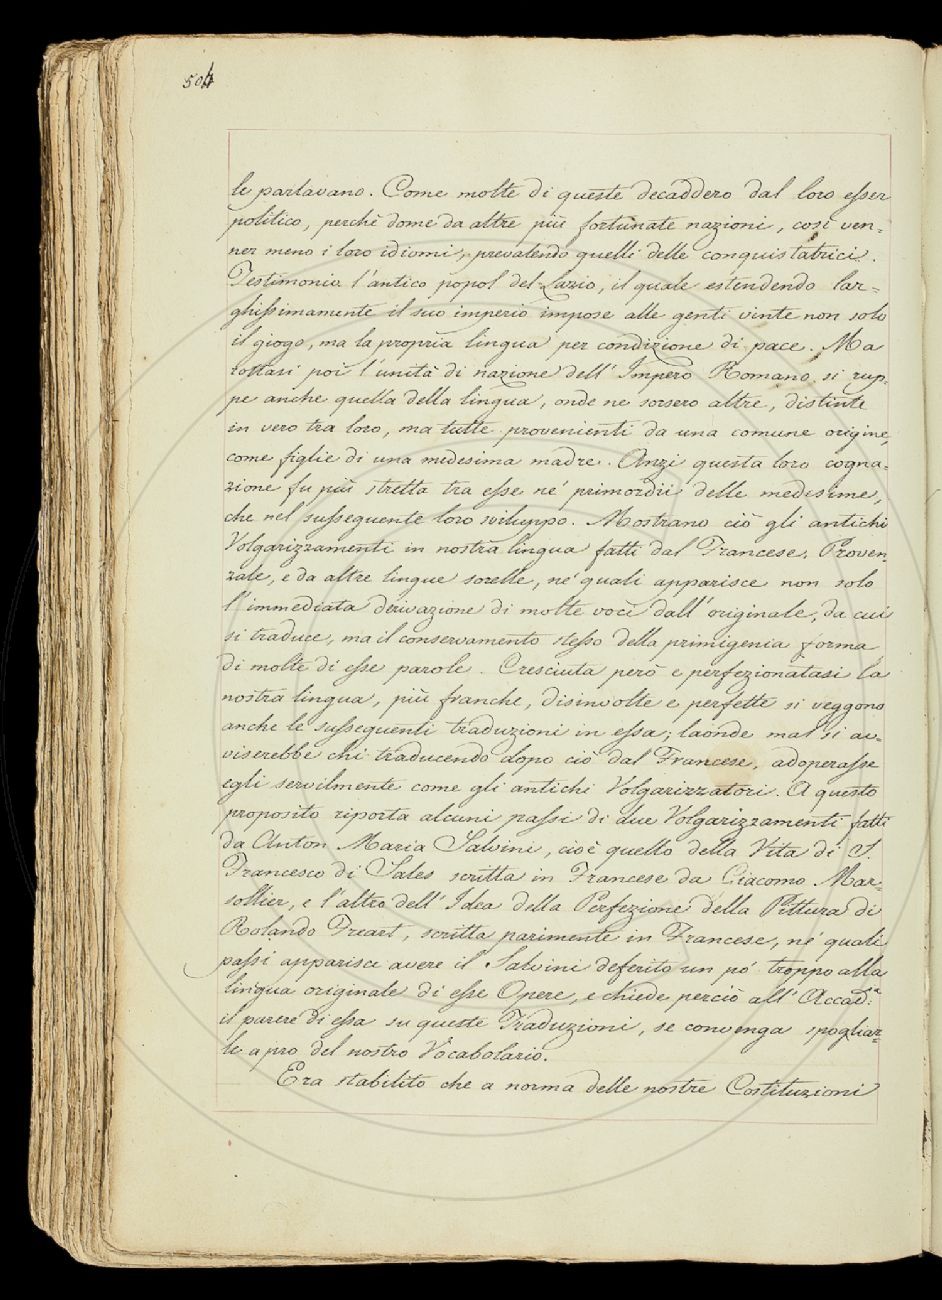 504
le parlavano. Come molte di queste decaddero dal loro esser
politico, perchè dome da altre più fortunate nazioni, così ven=
ner meno i loro idiomi, prevalendo quelli delle conquistatrici.
Testimonio l'antico popol del Lazio, il quale estendendo lar=
ghissimamente il suo imperio impose alle genti vinte non solo
il giogo, ma la propria lingua per condizione di pace. Ma
tottasi poi l'unità di nazione dell'Impero Romano, si rup=
pe anche quella della lingua, onde ne sorsero altre, distinte
in vero tra loro, ma tutte provenienti da una comune origine,
come figlie di una medesima madre. Anzi questa loro cogna=
zione fu più stretta tra esse ne' primordii delle medesime,
che nel susseguente loro sviluppo. Mostrano ciò gli antichi
Volgarizzamenti in nostra lingua fatti dal Francese, Proven=
zale, e da altre lingue sorelle, ne' quali apparisce non solo
l'immediata derivazione di molte voci dall'originale, da cui
si traduce, ma il conservamento stesso della primigenia forma
di molte di esse parole. Cresciuta però e perfezionatasi la
nostra lingua, più franche, disinvolte e perfette si veggono
anche le susseguenti traduzioni in essa; laonde mal si av=
viserebbe chi traducendo dopo ciò dal Francese, adoperasse
egli servilmente come gli antichi Volgarizzatori. A questo
proposito riporta alcuni passi di due Volgarizzamenti fatti
da Anton Maria Salvini, cioè quello della Vita di S.
Francesco di Sales scritta in Francese da Giacomo Mar=
sollier, e l'altro dell'Idea della Perfezione della Pittura di
Rolando Freart, scritta parimente in Francese, ne' quali
passi apparisce avere il Salvini deferito un po' troppo alla
lingua originale di esse Opere, e chiede perciò all'Accad.a
il parere di essa su queste Traduzioni, se convenga spogliar=
le a pro del nostro Vocabolario.
Era stabilito che a norma delle nostre Costituzioni